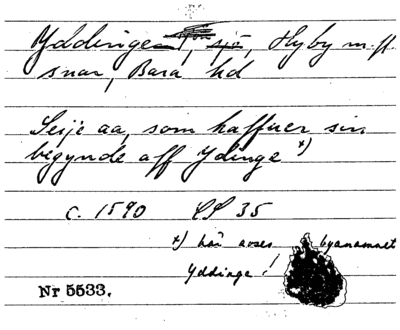 Yddingen, sjö, Hyby m.fl.
snar, Bara hd
Seije aa, som haffuer sin
begynde aff Ydinge x)
c. 1590 LP 35
x) här avses byanamnet
Yddinge!
Nr 5533.